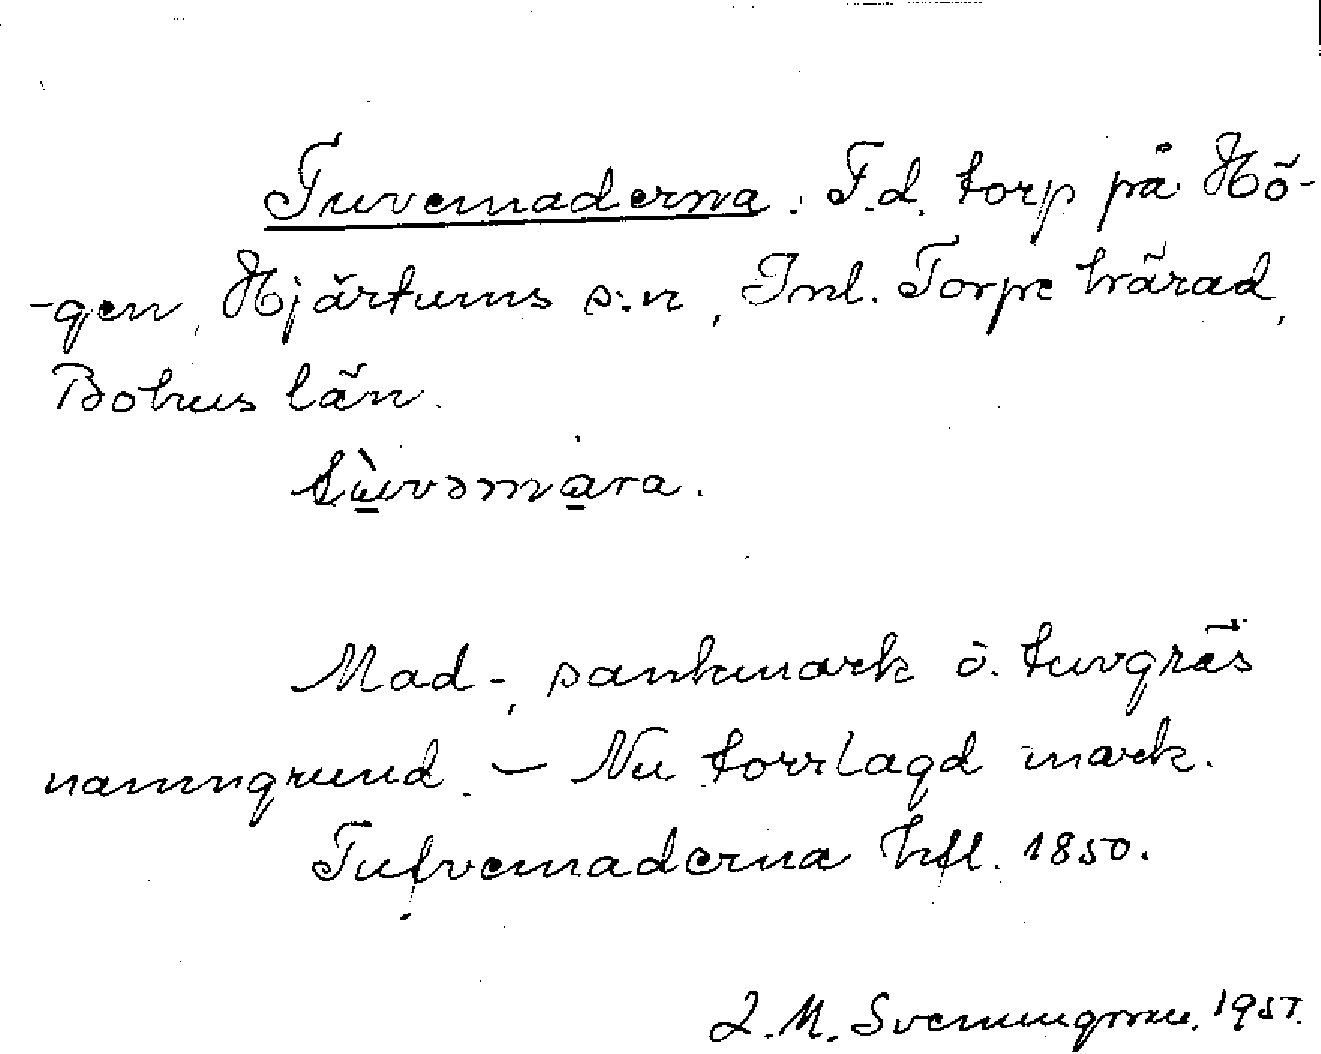 Tuvemaderna. F.d. torp på Hö-
-gen, Hjärtums s:n, Inl. Torpe härad,
Bohus län.
tùvəmara.
Mad-, sankmark o. tuvgräs
namngrund. – Nu torrlagd mark.
Tufvemaderna hfl. 1850.
L.M. Svenungsson. 1957.